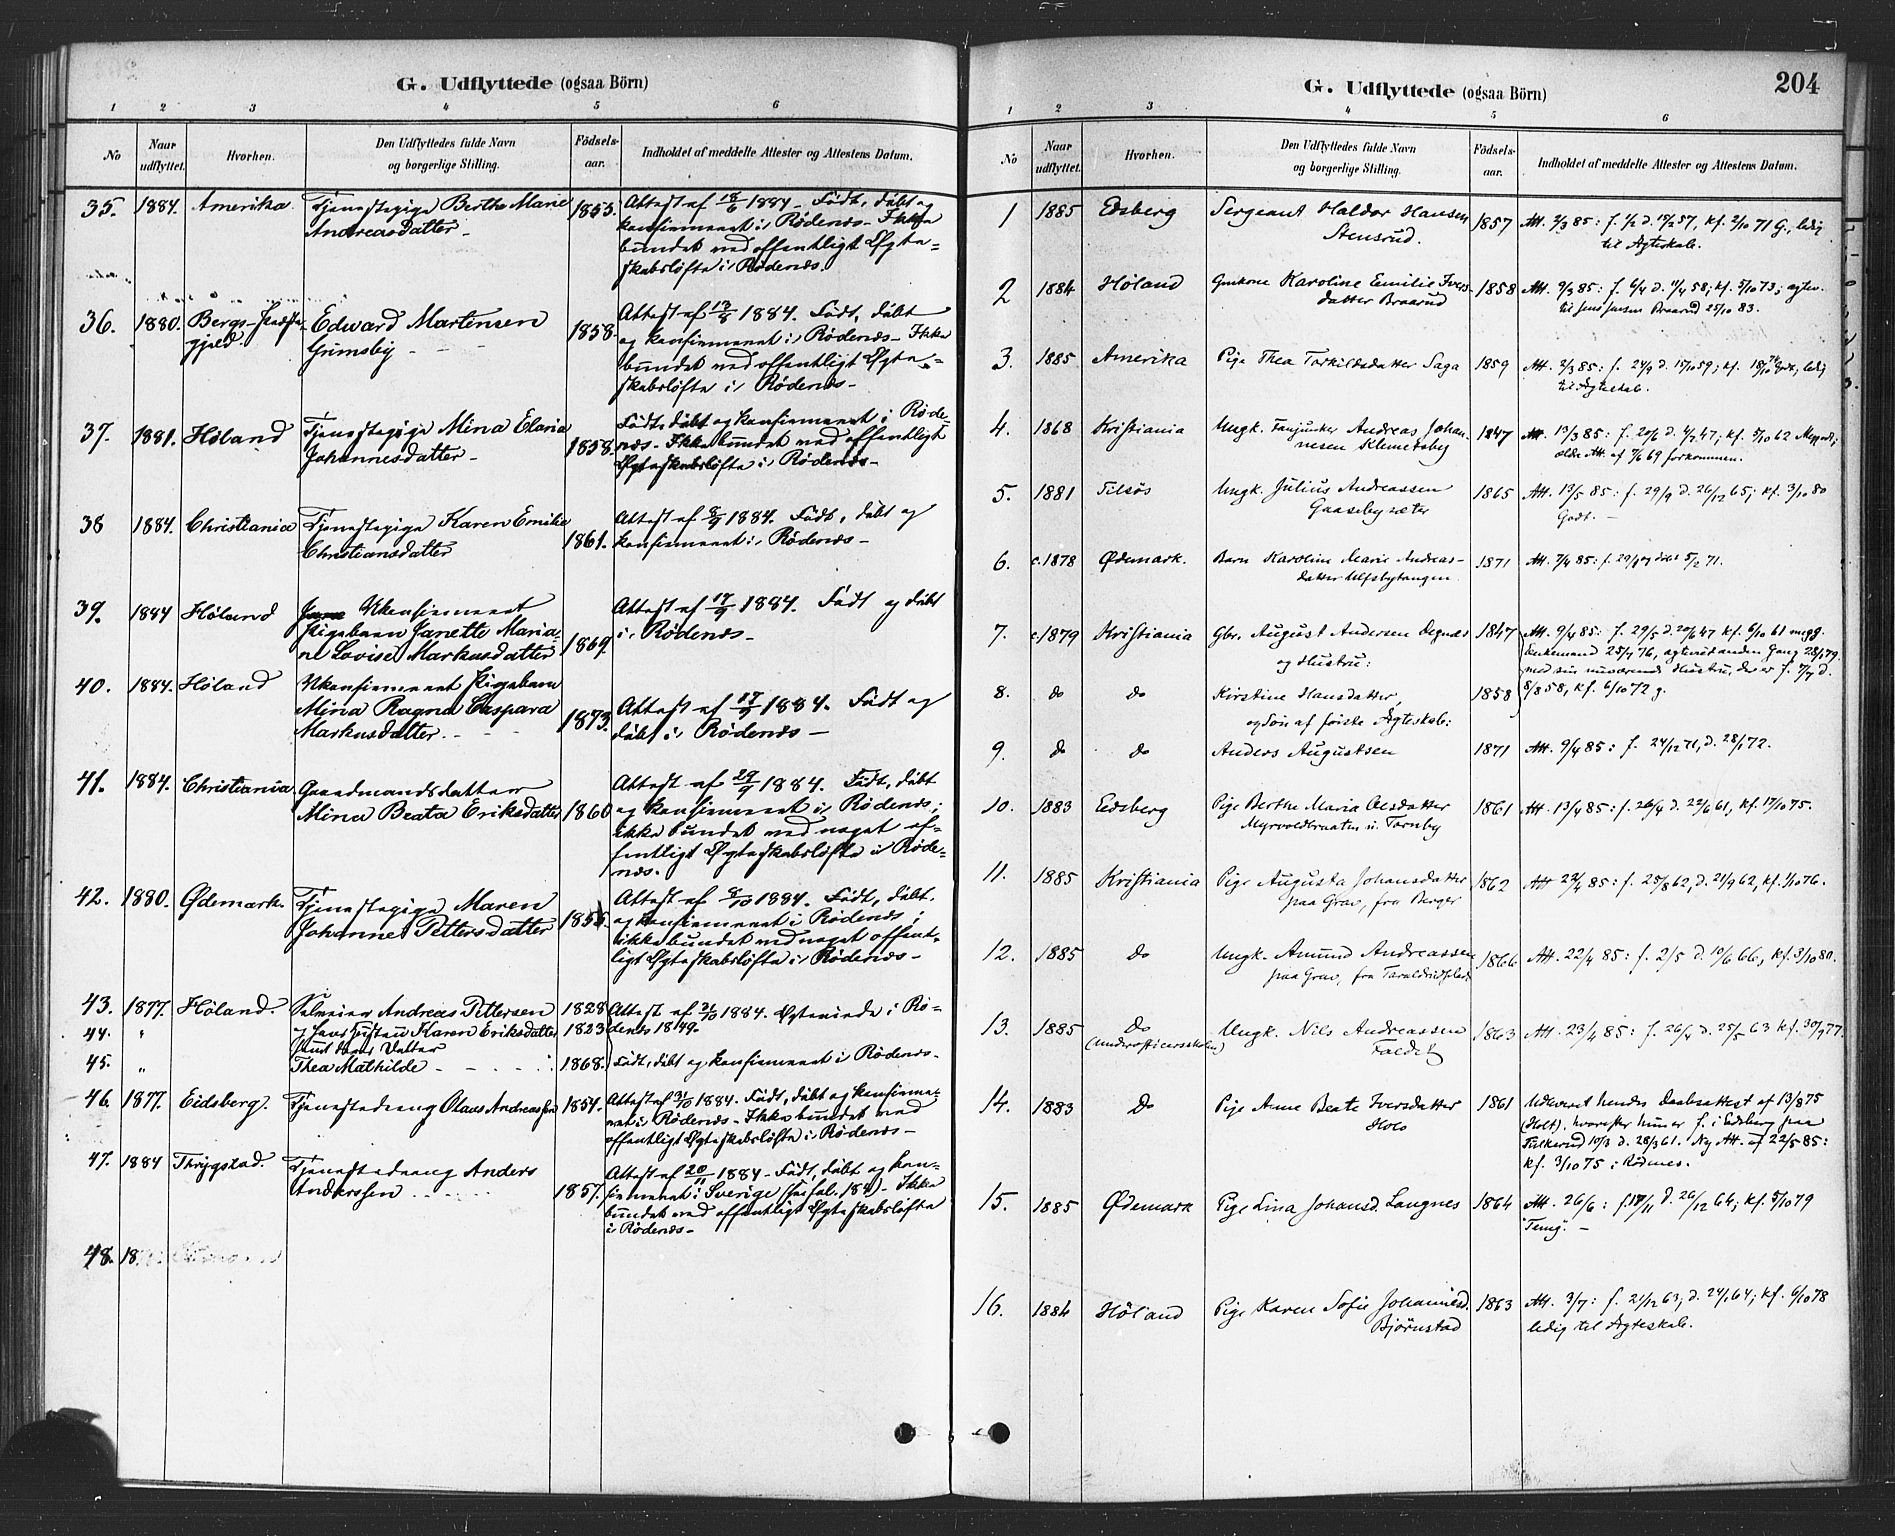 G. Udflyttede (ogsaa Börn)
1 2 3 4 5 6
No
Naar udflyttet.
Hvorhen.
Den Udflyttedes fulde Navn og borgerlige Stilling.
Födsels-aar.
Indholdet af meddelte Attester og Attestens Datum.
35. 1884. Amerika. Tjenestepige Berthe Marie 1853. Attest af 18/6 1884. Födt, döbt og
Andreasdatter - konfirmeret i Rödenæs - Ikke
bundet ved offentligt Ægte-
skabslöfte i Rödenæs.
36. 1880. Bergs-Præste- Edward Martensen 1858. Attest af 13/8 1884. Födt, döbt
gjeld. Grimsby - og konfirmeret i Rödenæs - Ikke
bundet ved offentligt Ægte-
skabslöfte i Rödenæs -
37. 1881. Höland Tjenestepige Mina Elaria 1858. Födt, döbt og konfirmeret i Röde-
Johannesdatter - næs - Ikke bundet ved offentligt
Ægteskabslöfte i Rödenæs -
38 1884. Christiania Tjenestepige Karen Emilie 1861. Attest af 8/9 1884. Födt, döbt og
Christiansdatter konfirmeret i Rödenæs -
39. 1884 Höland Ukonfirmeret 1869. Attest af 17/9 1884. Födt og döbt
Pigebarn Janette Maria- i Rödenæs -
ne Lovise Markusdatter
40. 1884. Höland Ukonfirmeret Pigebarn 1873. Attest af 17/9 1884. Födt og
Mina Ragna Caspara döbt i Rödenæs -
Markusdatter -
41. 1884. Christiania. Gaardmandsdatter 1860 Attest af 29/9 1884. Födt, döbt
Mina Beata Eriksdatter og konfirmeret i Rödenæs;
ikke bundet ved noget of-
fentligt Ægteskabslöfte i Röde-
næs.
42. 1880. Ødemark. Tjenestepige Maren 1855. Attest af 8/10 1884. Födt, döbt.
Johanne Pettersdatter og konfirmeret i Rödenæs;
ikke bundet ved noget offent-
ligt Ægteskabslöfte i Rödenæs -
43. 1877. Höland. Selveier Andreas Pettersen 1828 Attest af 21/10 1884. Ægteviede i Rö-
44. " og Karen Eriksdatter 1823 denæs 1849.
samt deres Datter
45. " Thea Mathilde - 1868. Födt, döbt og konfirmeret i Rödenæs -
46. 1877. Eidsberg. Tjenestedreng Olaus Andreassen 1854. Attest af 31/10 1884. Födt, döbt og konfirme-
ret i Rödenæs - Ikke bundet ved
offentligt Ægteskabslöfte i Rödenæs -
47. 1884 Thrygstad. Tjenestedreng Anders 1857. Attest af 20/11 1884 - Födt, döbt og kon-
Anderssen firmeret i Sverige - Ikke
bundet ved offentligt Ægteskabslöfte
i Rödenæs -
48. 18
G. Udflyttede (ogsaa Börn)
204
1 2 3 4 5 6
No
Naar udflyttet.
Hvorhen.
Den Udflyttedes fulde Navn og borgerlige Stilling.
Födsels-aar.
Indholdet af meddelte Attester og Attestens Datum.
1 1885 Edsberg Sergeant Haldor Hansen 1857 Att. 2/3 85: f. 1/2 d. 15/2 57, kf. 2/10 71 G., ledig
Stensrud. til Ægteskab.
2 1884 Höland Gmkone Karoline Emilie Ivers- 1858 Att. 9/3 85: f. 6/4 d. 11/4 58; kf. 5/10 73; egtev.
datter Braarud til Jens Jensen Braarud 25/10 83.
3. 1885 Amerika Pige Thea Torkildsdatter Saga 1859 Att. 2/3 85: f. 24/9 d. 15/10 59; kf. 18/10 74 Godt, ledig
til Ægteskab.
4. 1868 Kristiania Ungk. Fanjunker Andreas Johan- 1847 Att. 13/3 85: f. 20/6 d. 4/7 47; kf. 5/10 62 Meget;
nesen Klemetsby ældre Att. af 7/6 69 forkommen.
5. 1881 Ungk. Julius Andreassen 1865 Att. 13/5 85: f. 29/9 d. 26/12 65; kf. 3/10 80
Gaasebysæter Godt. -
6. c.1878 Ødemark. Barn Karoline Marie Andreas- 1871 Att. 7/4 85: f. 29/1 og döbt 5/2 71.
datter Ulfsbytangen.
7. c.1879 Kristiania Gbr. August Andersen Degnæs 1847 Att. 9/4 85: f. 29/5 d. 20/6 47 kf. 6/10 61 megg.
og Hustru: Enkemand 25/7 76, egteviet anden Gang 28/1 79.
med sin nuværende Hustru, der er f. 7/7 d.
8. do do Kirstine Hansdatter, 1858 8/8 58, kf. 6/10 72 g.
og Sön af förste Ægteskab:
9. do do Anders Augustsen 1871 Att. 9/4 85: f. 24/12 71, d. 28/1 72.
10. 1883 Edsberg Pige Berthe Maria Olsdatter 1861 Att. 13/4 85: f. 26/4 d. 22/6 61, kf. 17/10 75.
Myrvoldbraaten u. Tornby
11. 1885 Kristiania Pige Augusta Johansdatter 1862 Att 22/4 85: f. 25/8 62, d. 21/9 62, kf. 1/10 76.
paa Grav, fra Berger
12. 1885 do Ungk. Amund Andreassen 1866 Att. 22/4 85: f. 2/5 d. 10/6 66, kf. 3/10 80.
paa Grav, fra
13. 1885 do Ungk. Nils Andreassen 1863 Att. 23/4 85: f. 26/4 d. 25/5 63 kf. 30/9 77.
(Underofficersskolen) Faldet
14. 1883 do Pige Anne Beate Iversdatter 1861 Udleveret hendes Daabsattest af 13/8 75
Holt (Holt), hvorefter hun er f. i Edsberg paa
Fulkerud 10/3 d. 28/3 61. Ny Att. af 22/5 85:
kf. 3/10 75 i Rödenes.
15. 1885 Ødemark Pige Lina Johansd. Langnes 1864 Att. 26/6: f. 17/11 d. 26/12 64; kf. 5/10 79
Temg. -
16. 1884 Höland Pige Karen Sofie Johannesd. 1863 Att. 3/7: f. 21/12 63; d. 24/1 64; kf. 6/10 78
Björnstad ledig til Ægteskab.